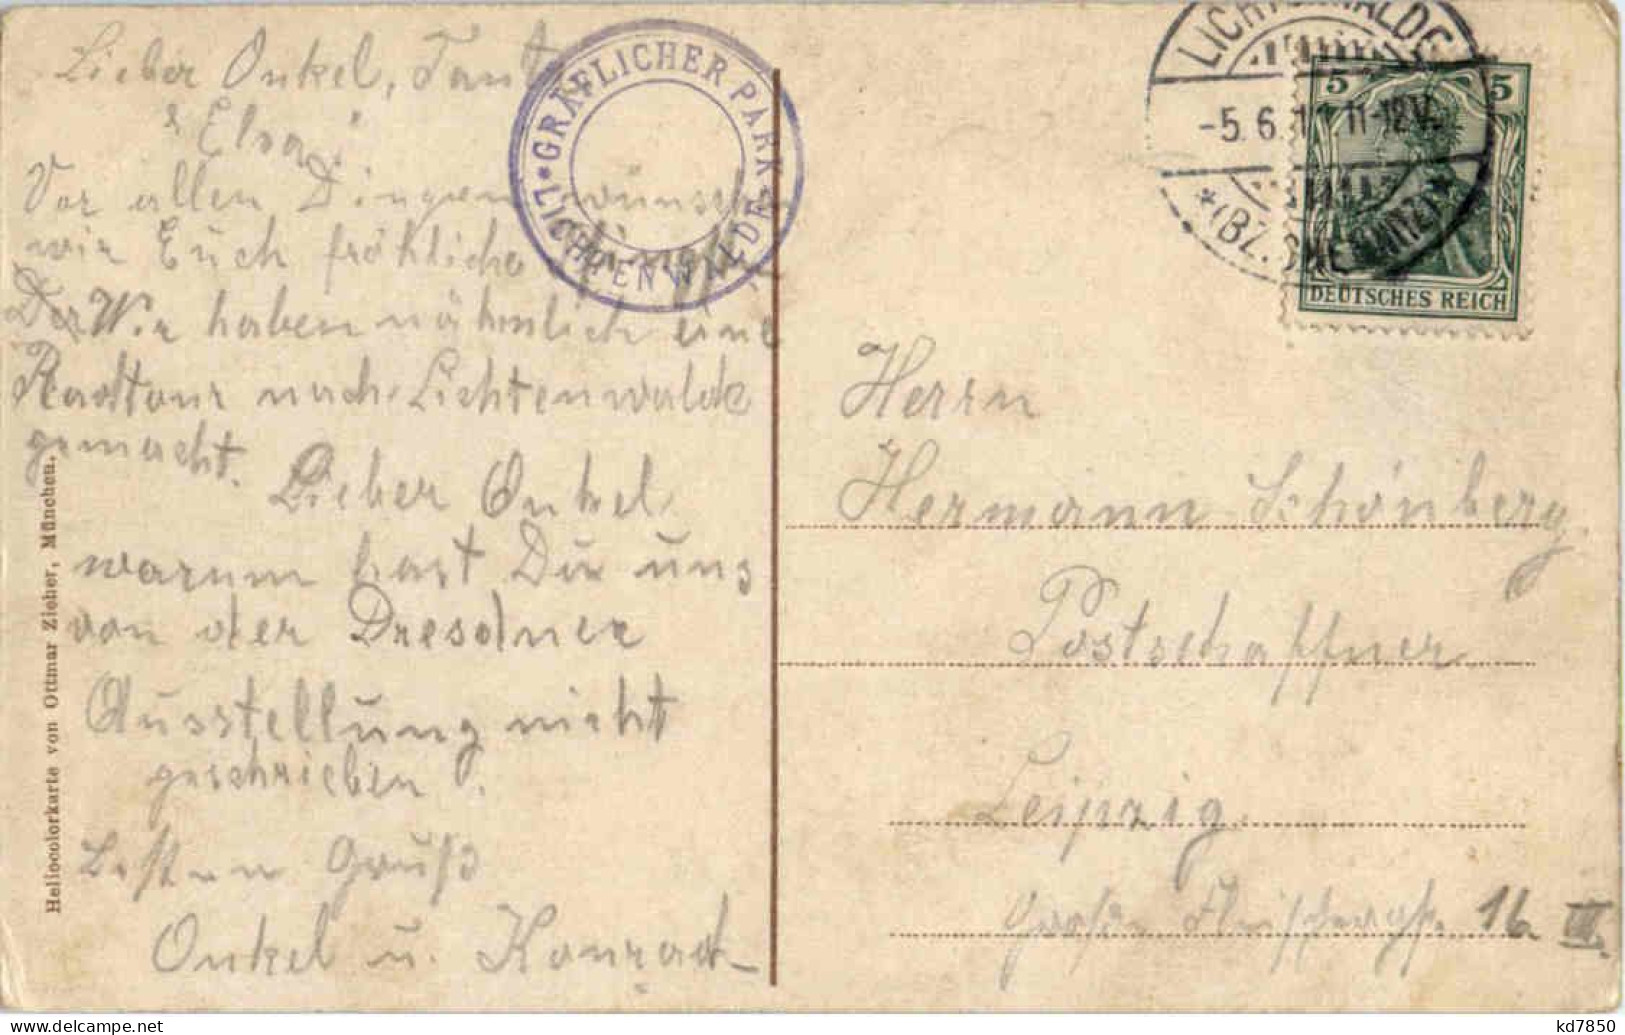 Lieber Onkel, Tante
u. Elsa!
Vor allen Dingen wünschen
wir Euch fröhliche Pfingsten
Wir haben nähmlich eine
Radtour nach Lichtenwalde
gemacht.
Lieber Onkel
warum hast Du uns
von der Dresdner
Ausstellung nicht
geschrieben?
Besten Gruß
Onkel u. Konrad
Heliocolorkarte von Ottmar Zieher, München.
* GRÄFLICHER PARK *
LICHTENWALDE
LICHTENWALDE
-5.6.11 11-12V.
*(BZ. CHEMNITZ)*
5 5
DEUTSCHES REICH
Herrn
Hermann Schönberg.
Postschaffner
Leipzig.
Große Fleischergs. 16. III.
kd7850